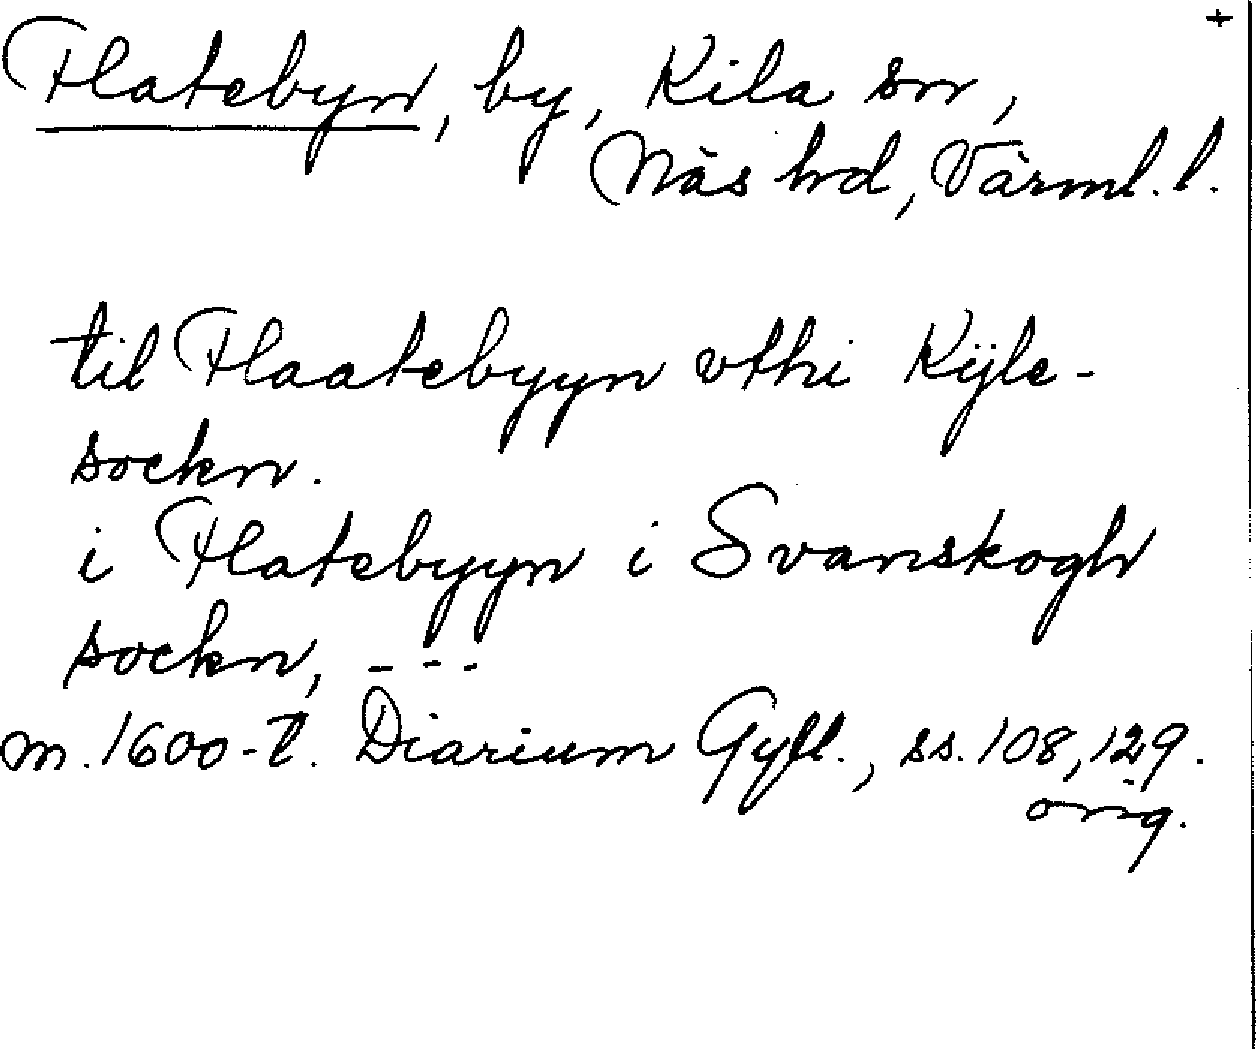 +
Flatebyn, by, Kila sn,
Näs hd, Värml. l.
til Flaatebyyn vthi Kÿle-
sockn.
i Flatebyyn i Svanskogh
sockn, ---
m. 1600-t. Diarium Gyll., ss. 108, 129.
orig.